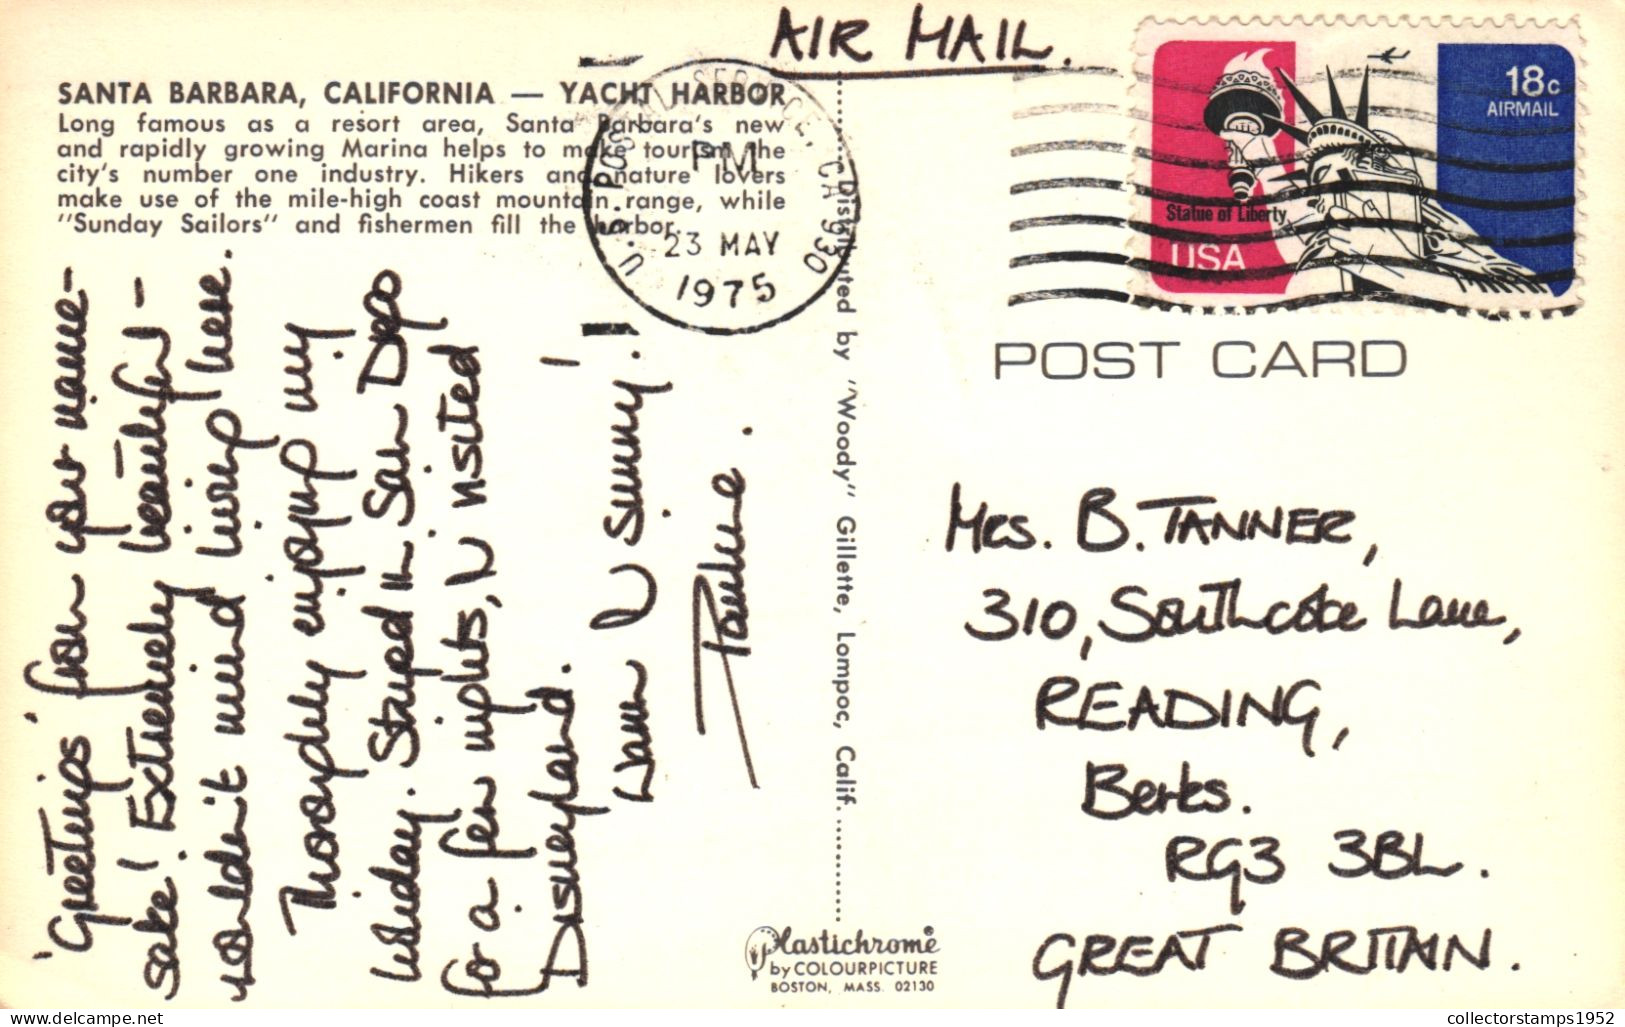 AIR MAIL.
SANTA BARBARA, CALIFORNIA — YACHT HARBOR
Long famous as a resort area, Santa Barbara's new
and rapidly growing Marina helps to make tourism the
city's number one industry. Hikers and nature lovers
make use of the mile-high coast mountain range, while
"Sunday Sailors" and fishermen fill the harbor.
U.S. POSTAL SERVICE, CA 930
PM
23 MAY
1975
18c
AIRMAIL
Statue of Liberty
USA
POST CARD
'Greetings' from your name-
sake! Extremely beautiful -
wouldn't mind living here.
Thoroughly enjoying my
holiday. Stayed in San Diego
for a few nights, & visited
Disneyland.
Warm & sunny!
Pauline.
Distributed by "Woody" Gillette, Lompoc, Calif.
Mrs. B. TANNER,
310, Southcote Lane,
READING,
Berks.
RG3 3BL.
GREAT BRITAIN.
Plastichrome
by COLOURPICTURE
BOSTON, MASS. 02130
delcampe.net
collectorstamps1952